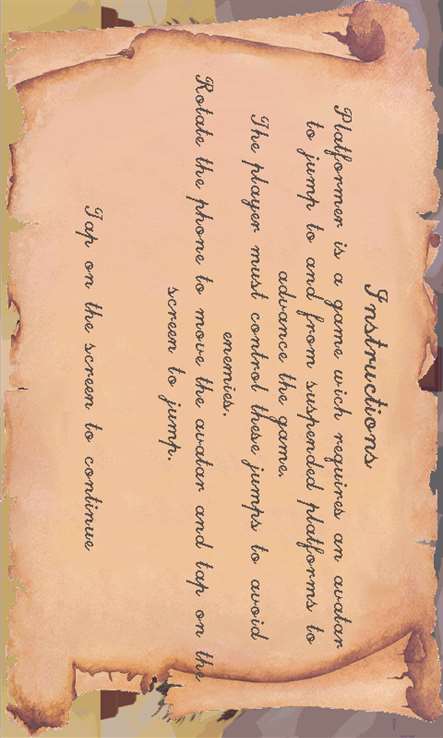 Instructions
Platformer is a game wich requires an avatar
to jump to and from suspended platforms to
advance the game.
The player must control these jumps to avoid
enemies.
Rotate the phone to move the avatar and tap on the
screen to jump.
Tap on the screen to continue